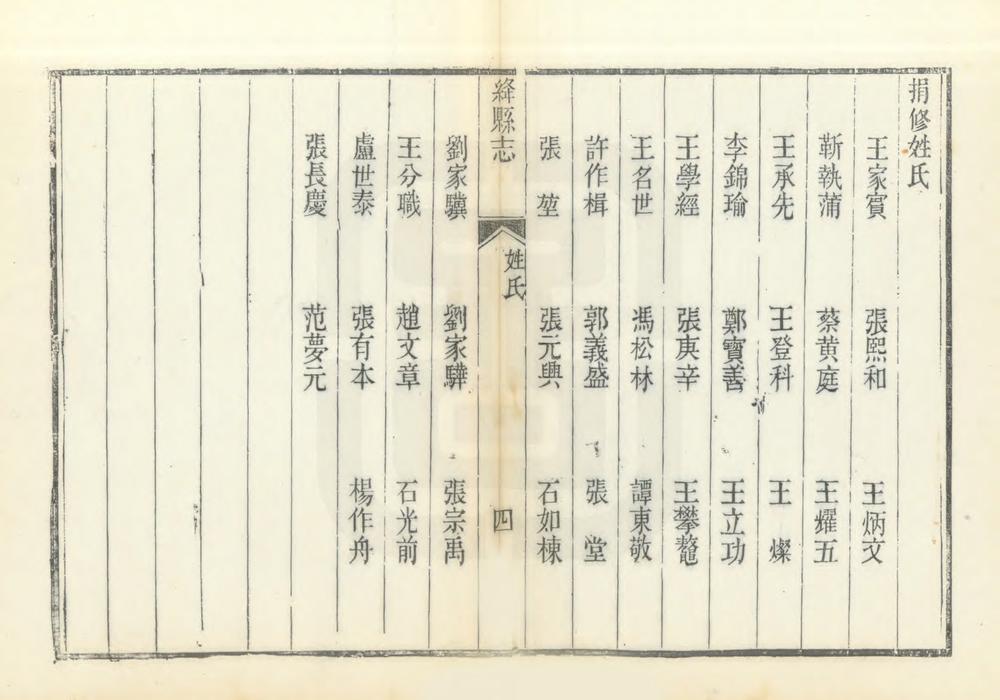 捐修姓氏
王家賓　張熙和　王炳文
靳執蒲　蔡黄庭　王耀五
王承先　王登科　王　燦
李錦瑜　鄭寶善　王立功
王學經　張庚辛　王攀鼇
王名世　馮松林　譚東敬
許作楫　郭義盛　張　堂
張　堃　張元興　石如棟
絳縣志　姓氏　四
劉家驥　劉家驊　張宗禹
王分職　趙文章　石光前
盧世泰　張有本　楊作舟
張長慶　范夢元